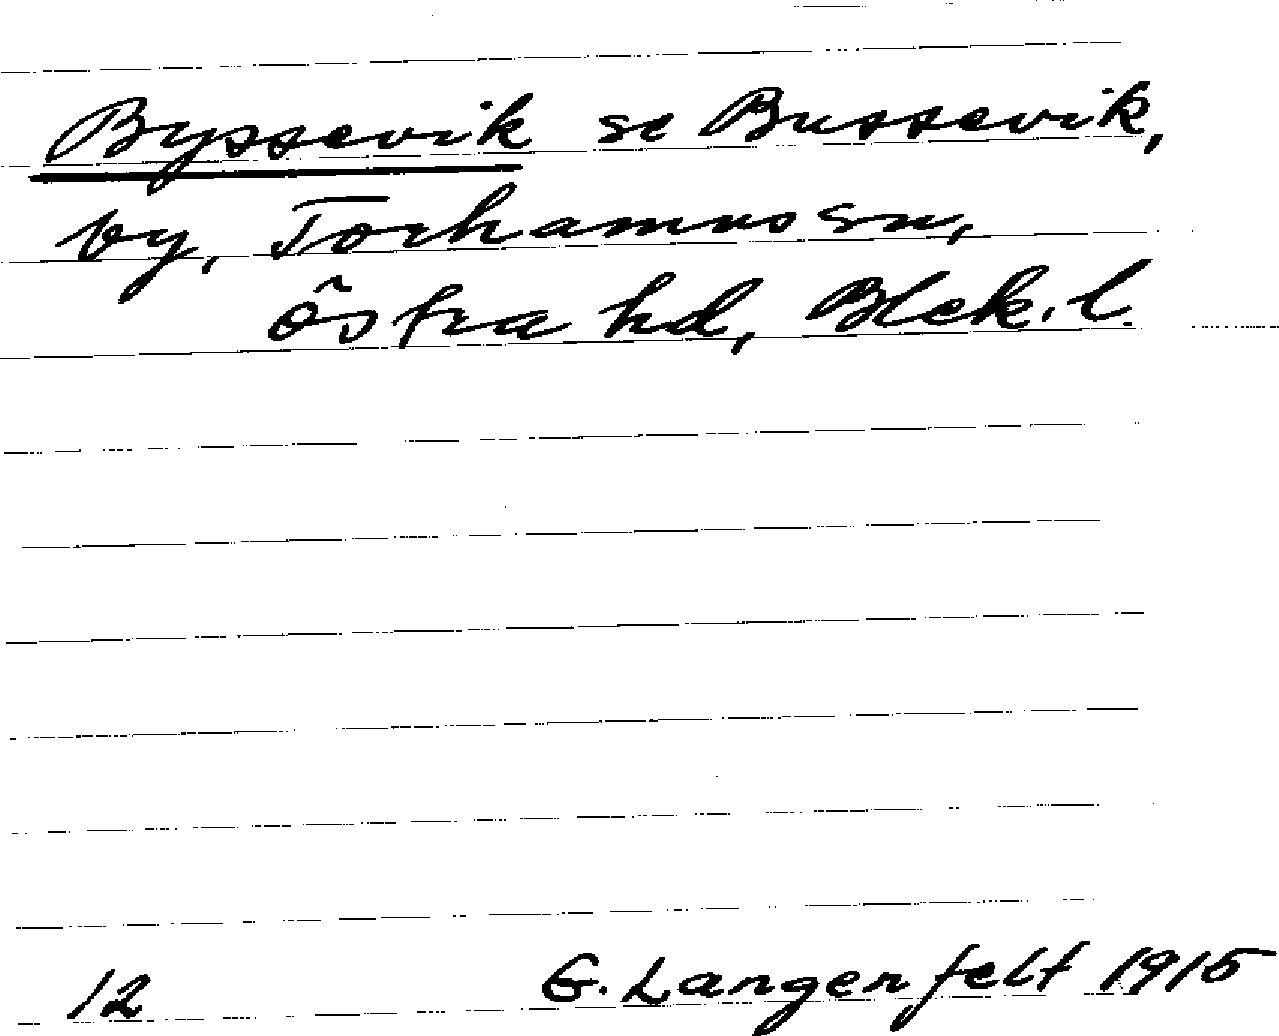 Byssevik se Bussevik,
by, Torhamns sn,
Östra hd, Blek. l.
12 G. Langenfelt 1915